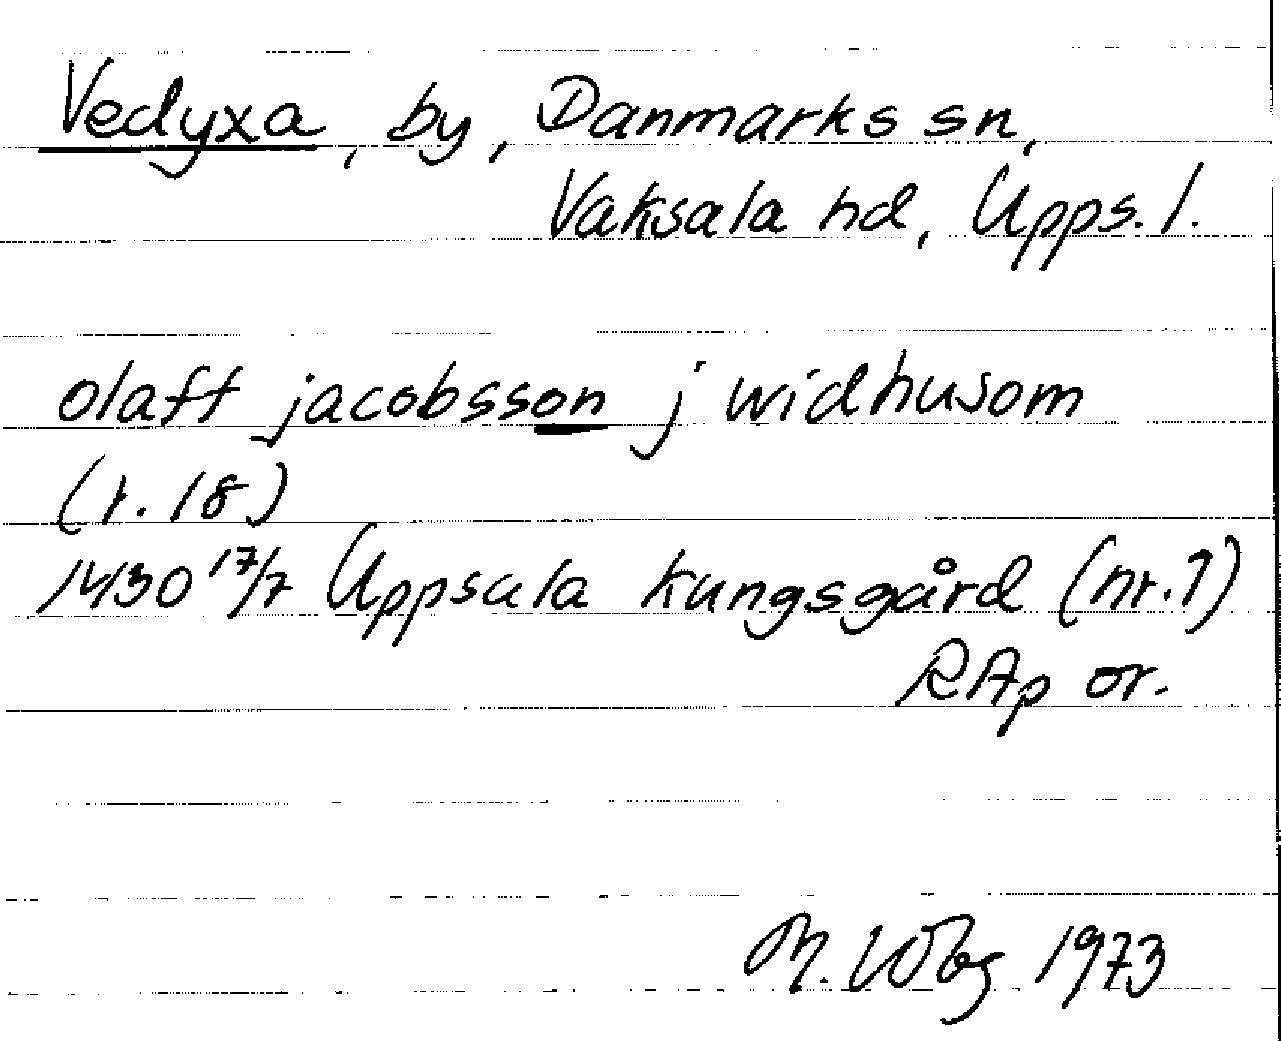 Vedyxa, by, Danmarks sn,
Vaksala hd, Upps. l.
olaff jacobsson j widhusom
(r. 18)
1430 17/7 Uppsala kungsgård (nr. 1)
RAp or.
M. Wbg 1973